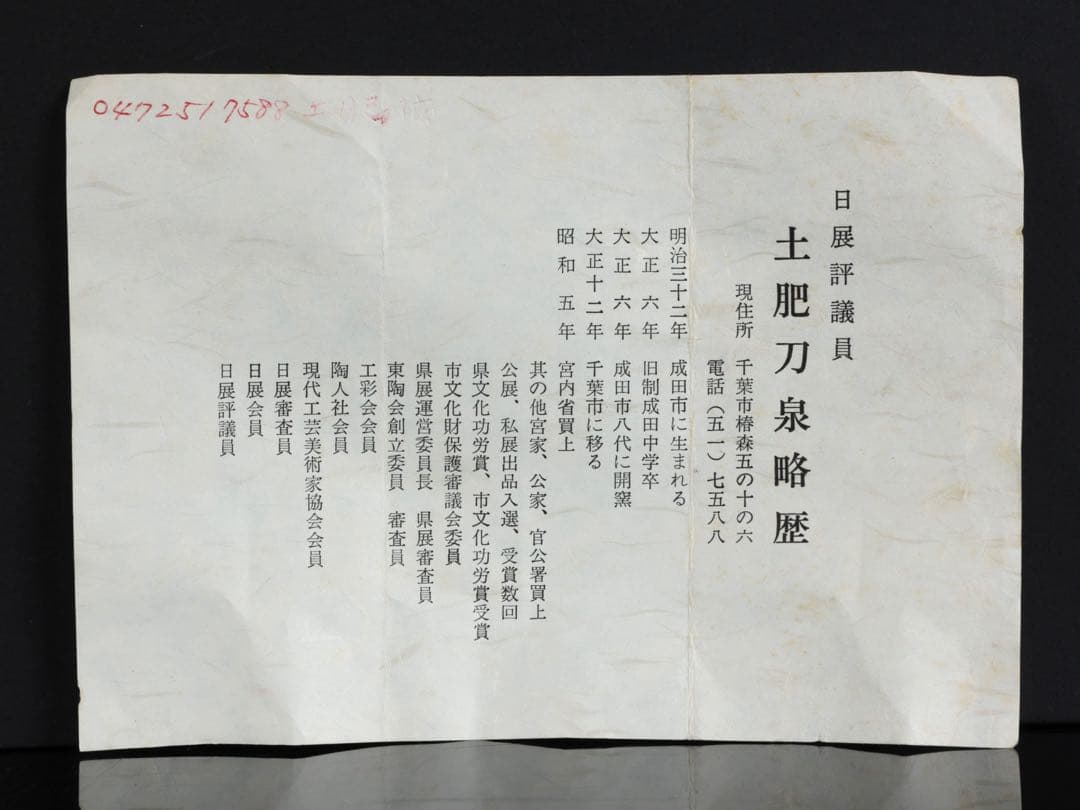 0472517588
日展評議員
土肥刀泉略歴
現住所 千葉市椿森五の十の六
電話(五一)七五八八
明治三十二年 成田市に生まれる
大正六年 旧制成田中学卒
大正六年 成田市八代に開窯
大正十二年 千葉市に移る
昭和五年 宮内省買上
其の他宮家、公家、官公署買上
公展、私展出品入選、受賞数回
県文化功労賞、市文化功労賞受賞
市文化財保護審議会委員
県展運営委員長 県展審査員
東陶会創立委員 審査員
工彩会会員
陶人社会員
現代工芸美術家協会会員
日展審査員
日展会員
日展評議員